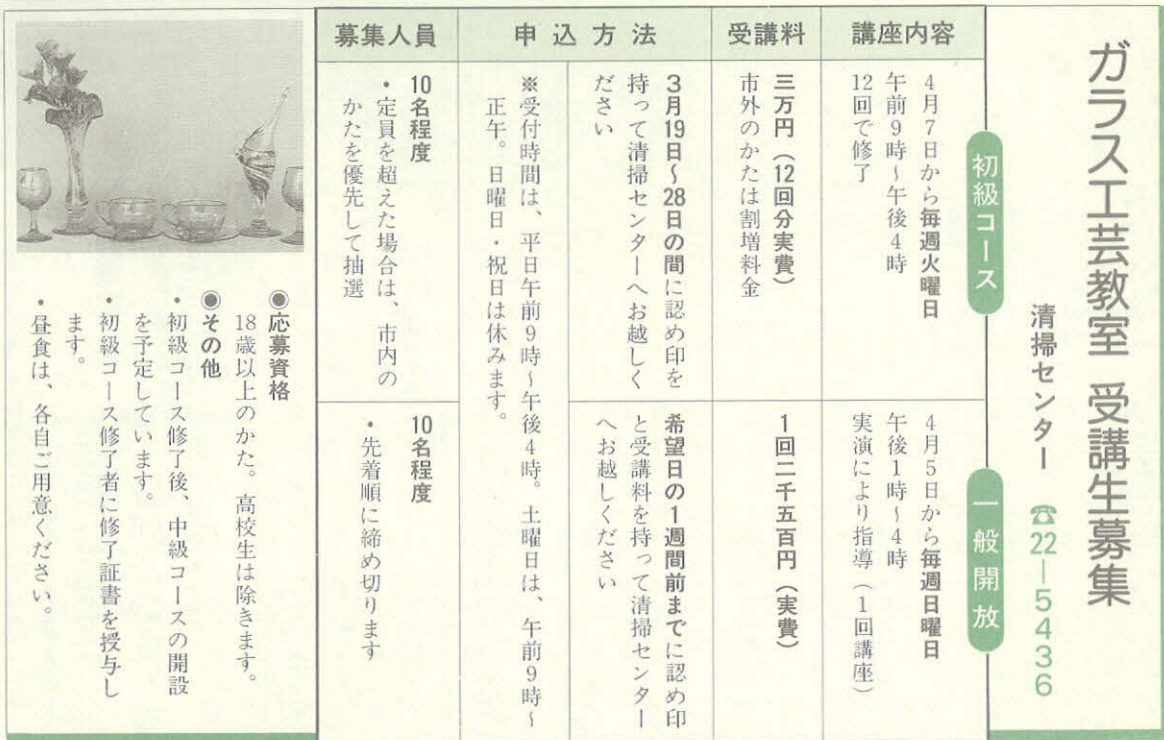 ガラス工芸教室 受講生募集
清掃センター ☎22―5436
初級コース
一般開放
講座内容
4月7日から毎週火曜日
午前9時〜午後4時
12回で修了
4月5日から毎週日曜日
午後1時〜4時
実演により指導（1回講座）
受講料
三万円（12回分実費）
市外のかたは割増料金
1回二千五百円（実費）
申込方法
3月19日〜28日の間に認め印を
持って清掃センターへお越しく
ださい
希望日の1週間前までに認め印
と受講料を持って清掃センター
へお越しください
※受付時間は、平日午前9時〜午後4時。土曜日は、午前9時〜
正午。日曜日・祝日は休みます。
募集人員
10名程度
・定員を超えた場合は、市内の
かたを優先して抽選
10名程度
・先着順に締め切ります
◉応募資格
18歳以上のかた。高校生は除きます。
◉その他
・初級コース修了後、中級コースの開設
を予定しています。
・初級コース修了者に修了証書を授与し
ます。
・昼食は、各自ご用意ください。